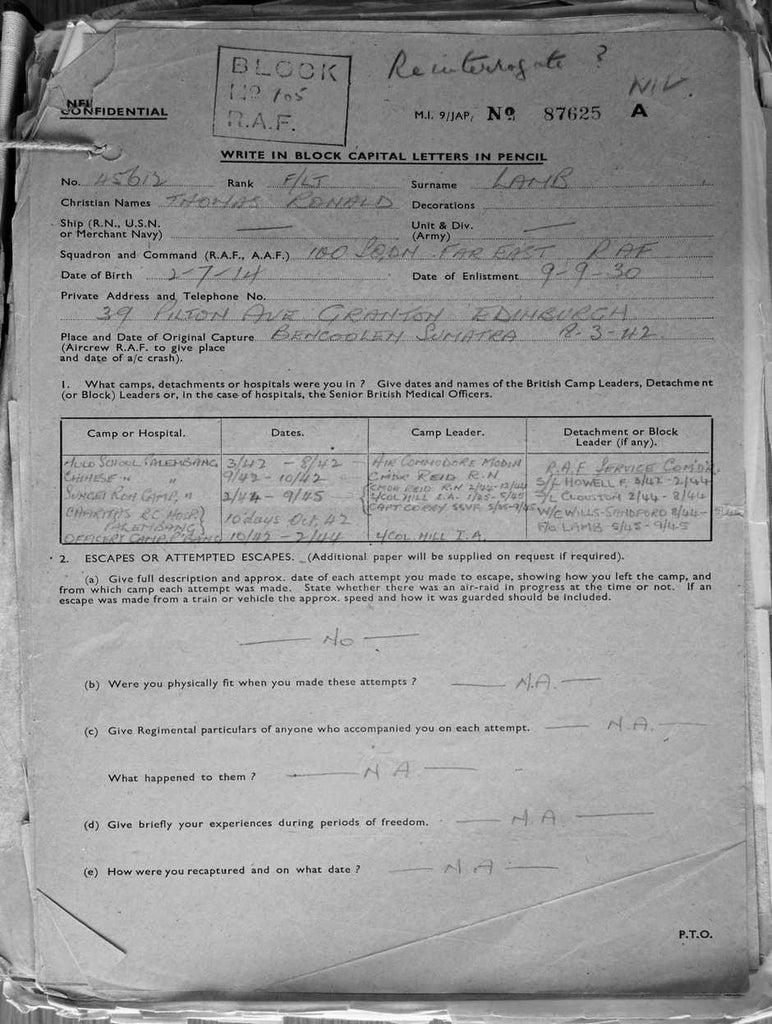 Reinterrogate ?
NIL
BLOCK
Nº 105
R.A.F.
CONFIDENTIAL
M.I. 9/JAP/ Nº 87625 A
WRITE IN BLOCK CAPITAL LETTERS IN PENCIL
No. 45612 Rank F/LT Surname LAMB
Christian Names THOMAS RONALD Decorations
Ship (R.N., U.S.N. or Merchant Navy) — Unit & Div. (Army) —
Squadron and Command (R.A.F., A.A.F.) 100 SQDN FAR EAST RAF
Date of Birth 2-7-14 Date of Enlistment 9-9-30
Private Address and Telephone No.
39 PILTON AVE GRANTON EDINBURGH
Place and Date of Original Capture BENCOOLEN SUMATRA 8.3-42.
(Aircrew R.A.F. to give place
and date of a/c crash).
1. What camps, detachments or hospitals were you in ? Give dates and names of the British Camp Leaders, Detachment
(or Block) Leaders or, in the case of hospitals, the Senior British Medical Officers.
Camp or Hospital. Dates. Camp Leader. Detachment or Block Leader (if any).
MULO SCHOOL PALEMBANG 3/42 - 8/42 AIR COMMODORE MODIN R.A.F SERVICE COMDR
CHINESE " " 9/42 - 10/42 CMDR REID R.N S/L HOWELL F, 3/42 - 2/44
SUNGEI RON CAMP, " 2/44 - 9/45 CMDR REID R.N 2/44-12/44 CLOUSTON 2/44 - 8/44
L/COL HILL I.A. 1/45-5/45
CHARITAS RC HOSP PALEMBANG 10 days Oct, 42 CAPT CORRY SSVF 5/45-9/45 W/C WILLS-SANDFORD 8/44 -
OFFICERS CAMP P'BANG 10/42 - 2/44 L/COL. HILL I.A. F/O LAMB 5/45 - 9/45
2. ESCAPES OR ATTEMPTED ESCAPES. (Additional paper will be supplied on request if required).
(a) Give full description and approx. date of each attempt you made to escape, showing how you left the camp, and
from which camp each attempt was made. State whether there was an air-raid in progress at the time or not. If an
escape was made from a train or vehicle the approx. speed and how it was guarded should be included.
— No —
(b) Were you physically fit when you made these attempts ? — N.A. —
(c) Give Regimental particulars of anyone who accompanied you on each attempt. — N.A. —
What happened to them ? — N A —
(d) Give briefly your experiences during periods of freedom. — N.A. —
(e) How were you recaptured and on what date ? — N A —
P.T.O.